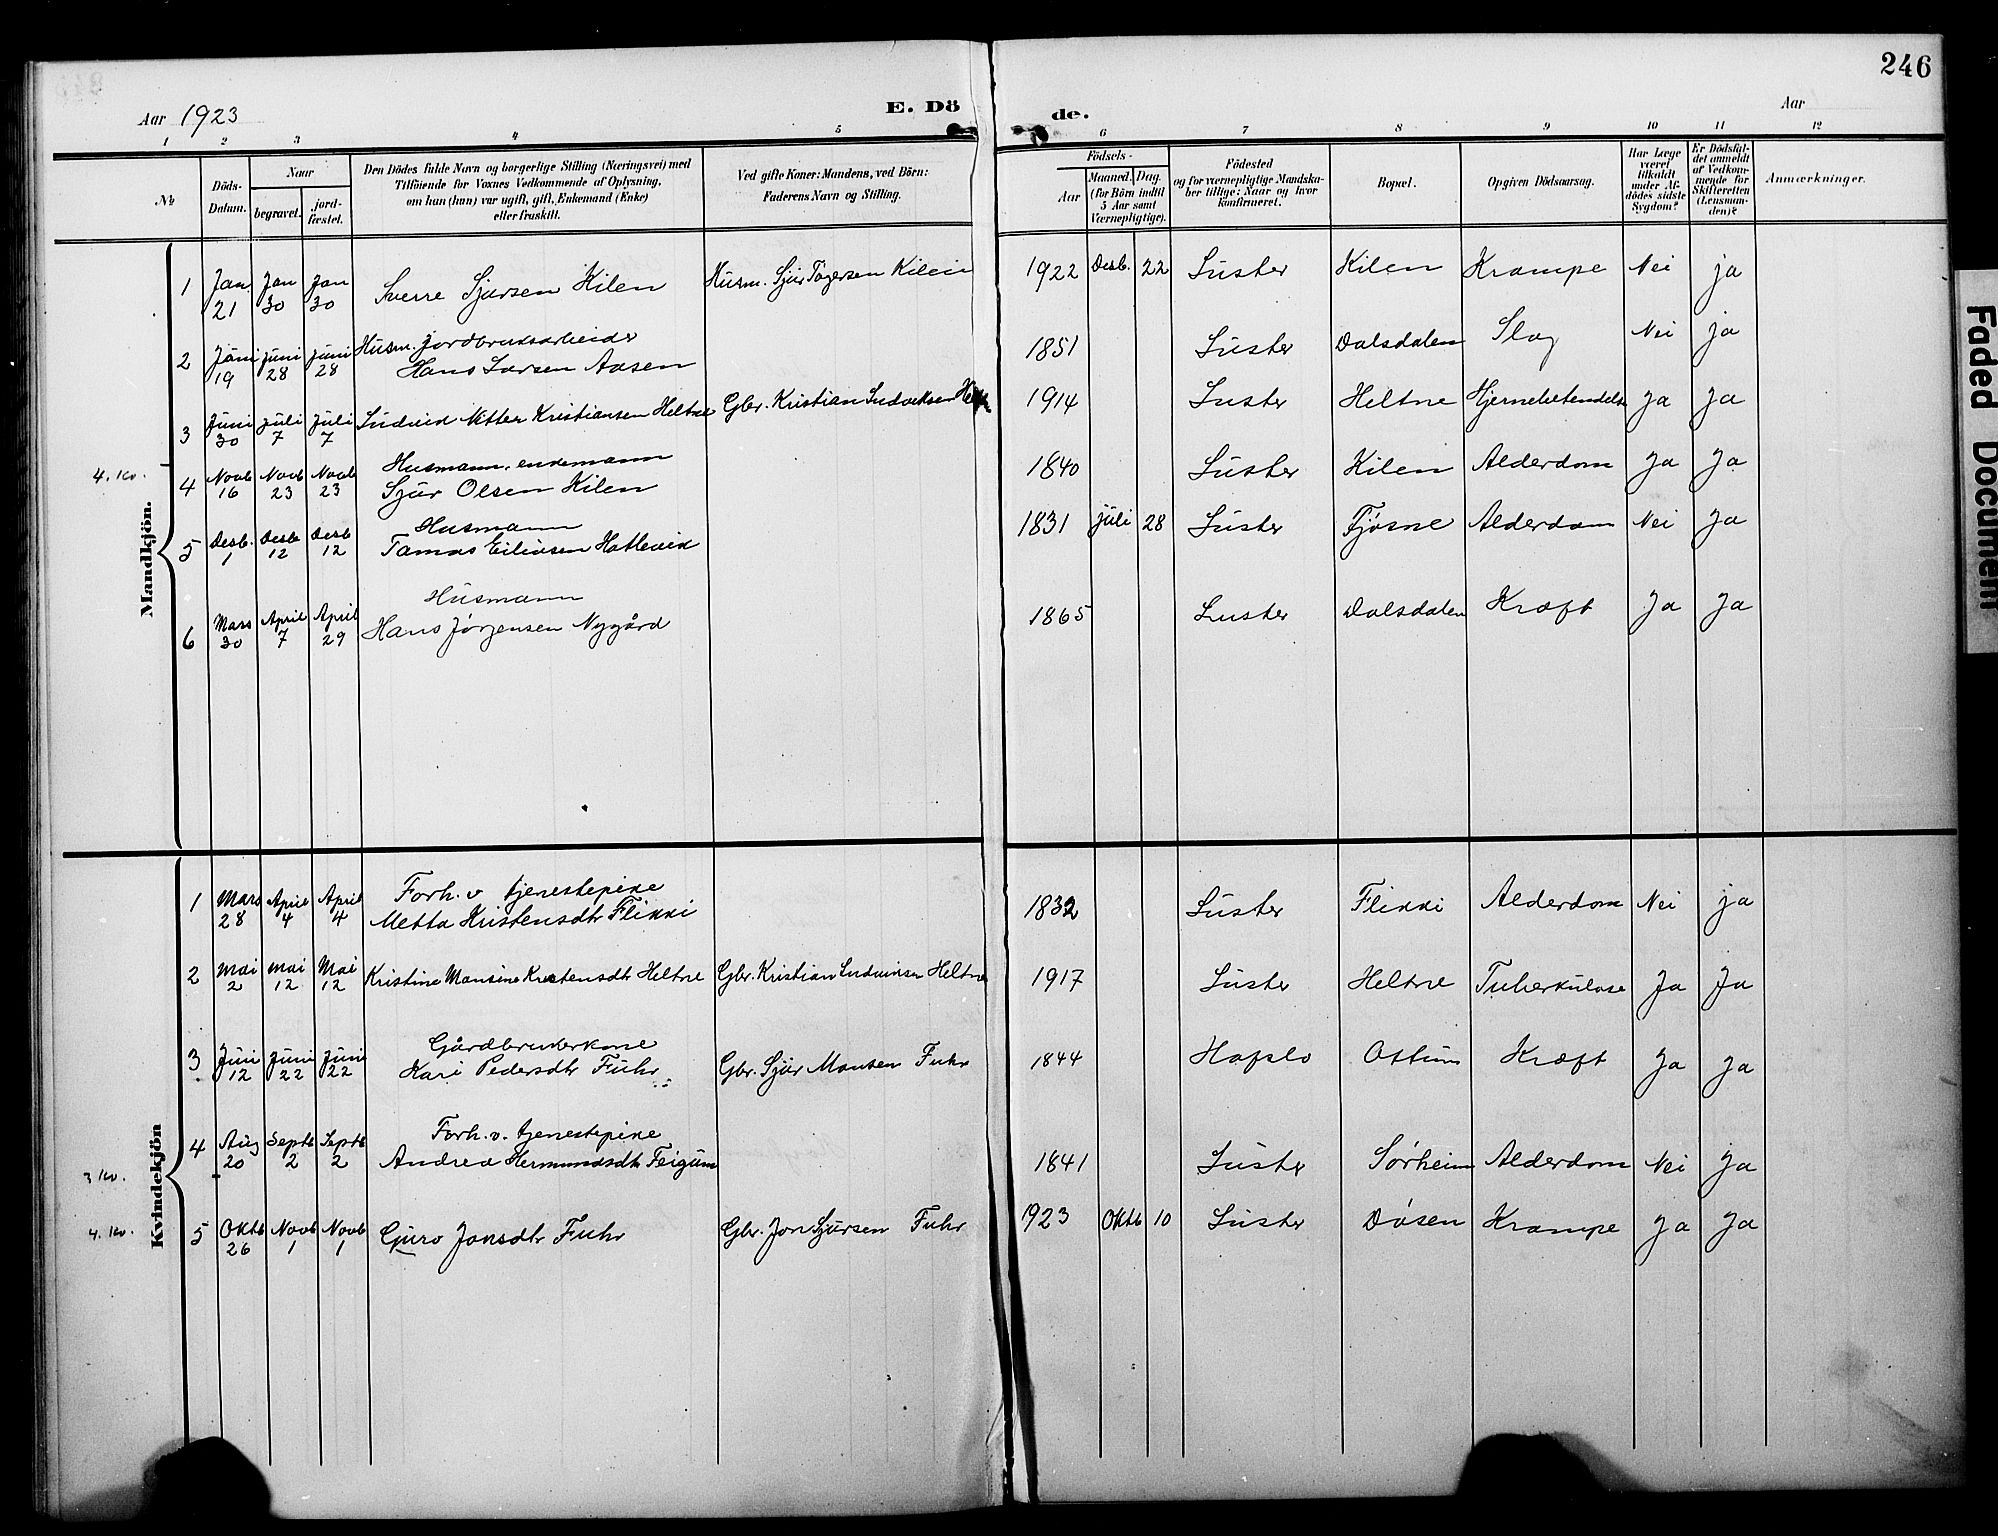 246
Aar 1923
E. Dö
de.
Aar
1 2 3 4 5 6 7 8 9 10 11 12
№
Döds-
Datum.
Naar
begravet.
jord-
fæstet.
Den Dödes fulde Navn og borgerlige Stilling (Næringsvei) med
Tilföiende for Voxnes Vedkommende af Oplysning,
om han (hun) var ugift, gift, Enkemand (Enke)
eller fraskilt.
Ved gifte Koner: Mandens, ved Börn:
Faderens Navn og Stilling.
Födsels-
Aar
Maaned.
Dag.
(for Börn indtil
5 Aar samt
Værnepligtige).
Födested
og for værnepligtige Mandska-
ber tillige: Naar og hvor
konfirmeret.
Bopæl.
Opgiven Dödsaarsag.
Har Læge
været
tilkaldt
under Af-
dödes sidste
Sygdom?
Er Dödsfal-
det anmeldt
af Vedkom-
mende for
Skifteretten
(Lensman-
den)?
Anmærkninger.
Mandkjön.
1 Jan. 21 Jan 30 Jan 30 Sverre Sjursen Kilen Husm. Sjur Tøgersen Kilen 1922 Desb. 22 Luster Kilen Krampe Nei ja
Husm. jordbruksarbeider
2 Juni 19 juni 28 juni 28 Hans Larsen Aasen 1851 Luster Dalsdalen Slag Nei ja
3 Juni 30 juli 7 juli 7 Ludvik Nitter Kristiansen Heltne Gbr. Kristian Ludviksen 1914 Luster Heltne Hjernebetendelse Ja Ja
4. kv.
Husmann, enkemann
4 Novb 16 Novb 23 Novb 23 Sjur Olsen Kilen 1840 Luster Kilen Alderdom Ja Ja
Husmann
5 Desb. 1 Desb 12 Desb 12 Tamas Eilivsen Hatlevik 1831 juli 28 Luster Fjøsne Alderdom Nei Ja
Husmann
6 Mars 30 April 7 April 29 Hans Jørgensen Nygård 1865 Luster Dalsdalen Kræft Ja Ja
Kvindekjön
Forh. v. tjenestepike
1 Mars 28 April 4 April 4 Metta Kristensdtr Flikki 1832 Luster Flikki Alderdom Nei ja
2 Mai 2 mai 12 Mai 12 Kristine Monsine Kristensdtr Heltne Gbr. Kristian Ludviksen Heltne 1917 Luster Heltne Tuberkulose Ja Ja
Gårdbrukerkone
3 Juni 12 Juni 22 Juni 22 Kari Pedersdtr Fuhr Gbr. Sjur Monsen Fuhr 1844 Hafslo Ottum Kræft Ja Ja
3 kv.
Forh. v. tjenestepike
4 Aug 20 Septb 2 Septb 2 Andrea Hermundsdtr Feigum 1841 Luster Sørheim Alderdom Nei Ja
4. kv.
5 Oktb 26 Novb 1 Novb 1 Guro Jonsdtr Fuhr Gbr. Jon Sjursen Fuhr 1923 Oktb 10 Luster Døsen Krampe Ja Ja
Faded Document